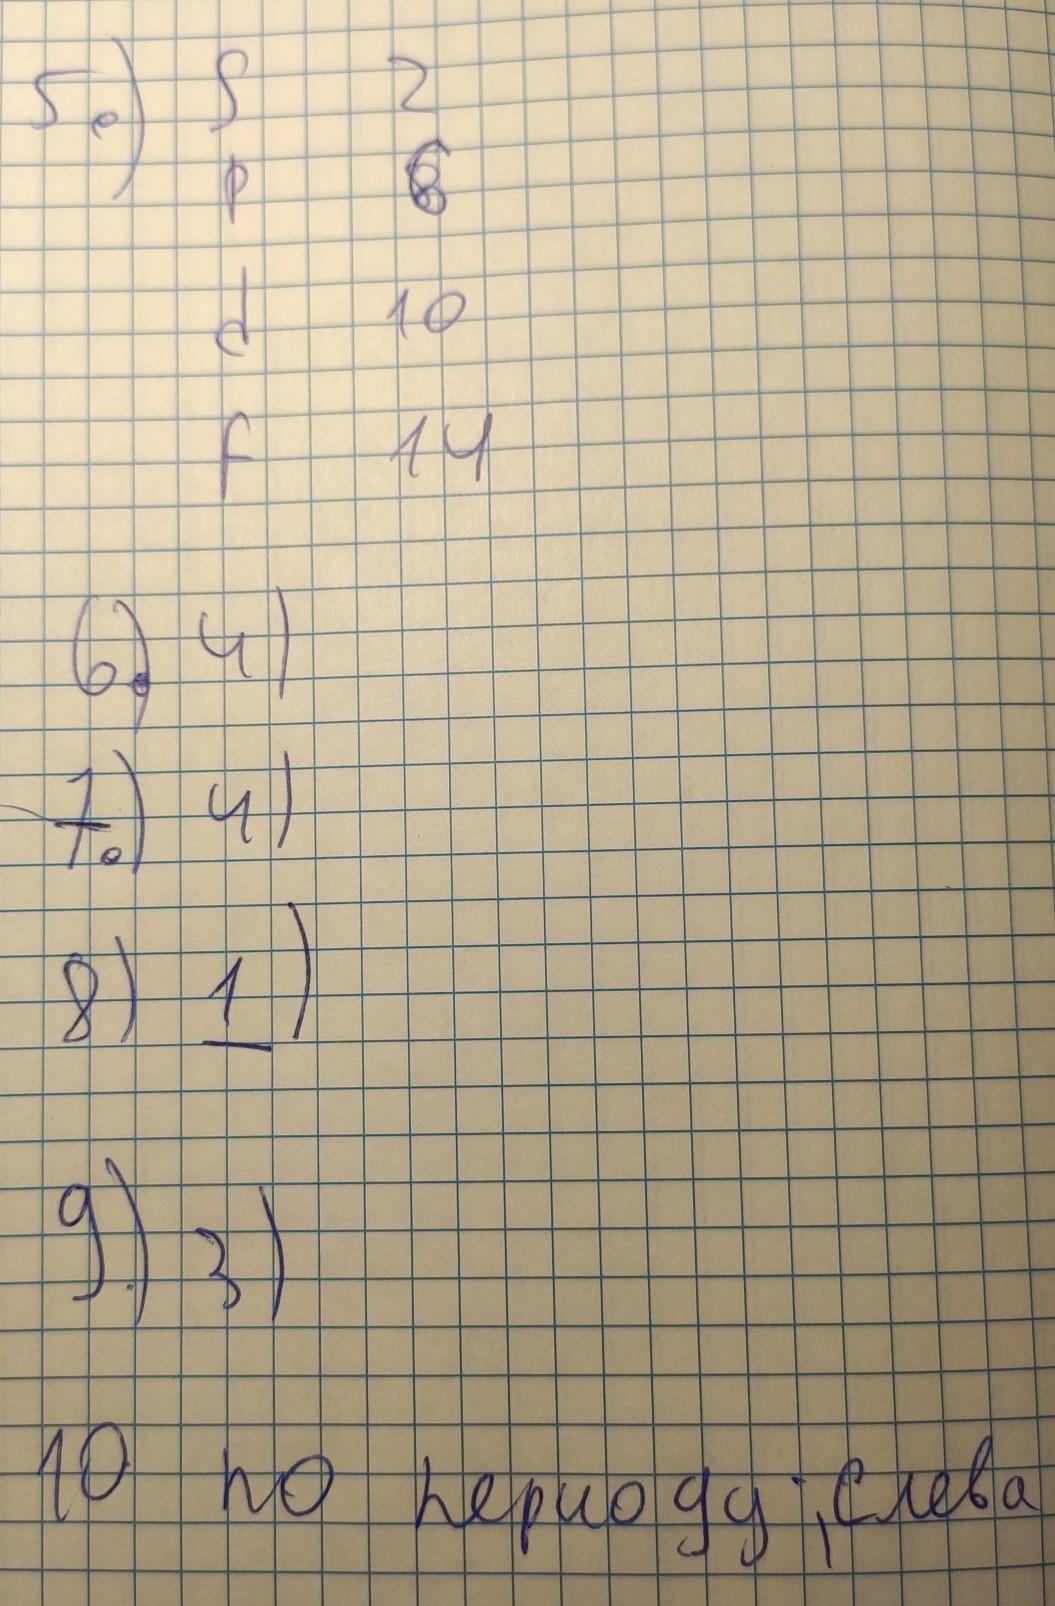 5.) S 2
p 6
d 10
f 14
6.) 4)
7.) 4)
8) 1)
9.) 3)
10 по периоду, слева